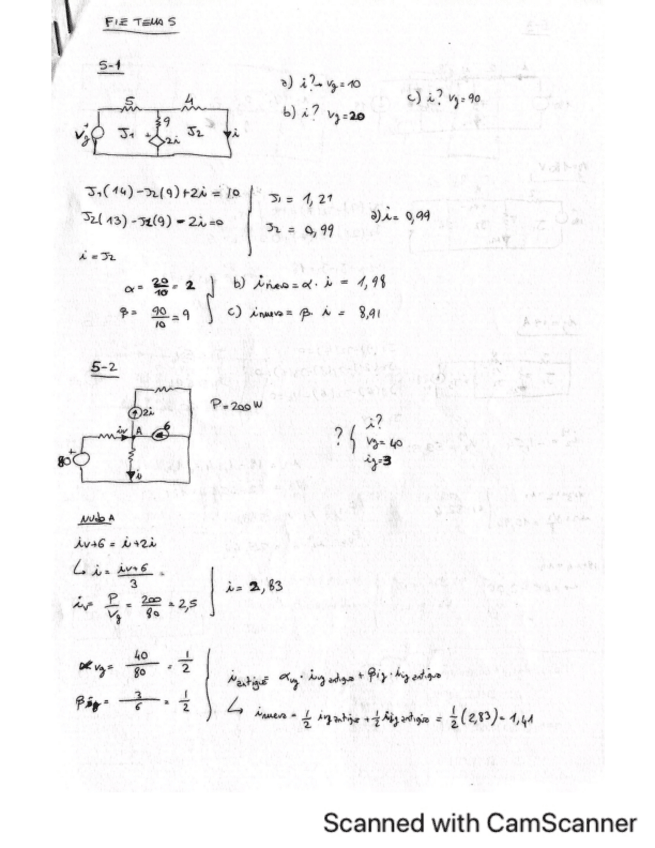 FIE TEMA 5
5-1
a) i? → Vg = 10
b) i? Vg = 20
c) i? Vg = 90
5 4
9
Vg + J1 + 2i J2 i
J1(14) - J2(9) + 2i = 10
J2(13) - J1(9) - 2i = 0
J1 = 1,21
J2 = 0,99
a) i = 0,99
i = J2
α = 20/10 = 2
β = 90/10 = 9
b) inuevo = α · i = 1,98
c) inuevo = β · i = 8,91
5-2
P = 200 W
2i
iv A 6
80 + i
? { i?
Vg = 40
ig = 3
nudo A
iv + 6 = i + 2i
↳ i = iv+6/3 =
iv = P/Vg = 200/80 = 2,5
i = 2,83
α vg = 40/80 = 1/2
β ig = 3/6 = 1/2
iantigua = αvg · ivg antigua + βig · iig antigua
↳ inuevo = 1/2 ivg antigua + 1/2 iig antigua = 1/2 (2,83) = 1,41
Scanned with CamScanner